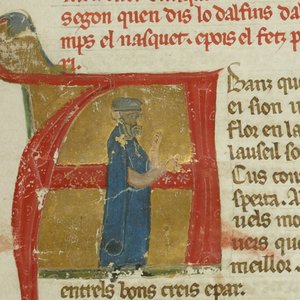 segon quen dis lo dalfins da
mps el nasquet. epois el fetz p
ri.
anz que
ei sion u
flor en la
lauseil so
Cus com
sperta. A
uels mo
uers que
meillor.
entrels bons creis epar.